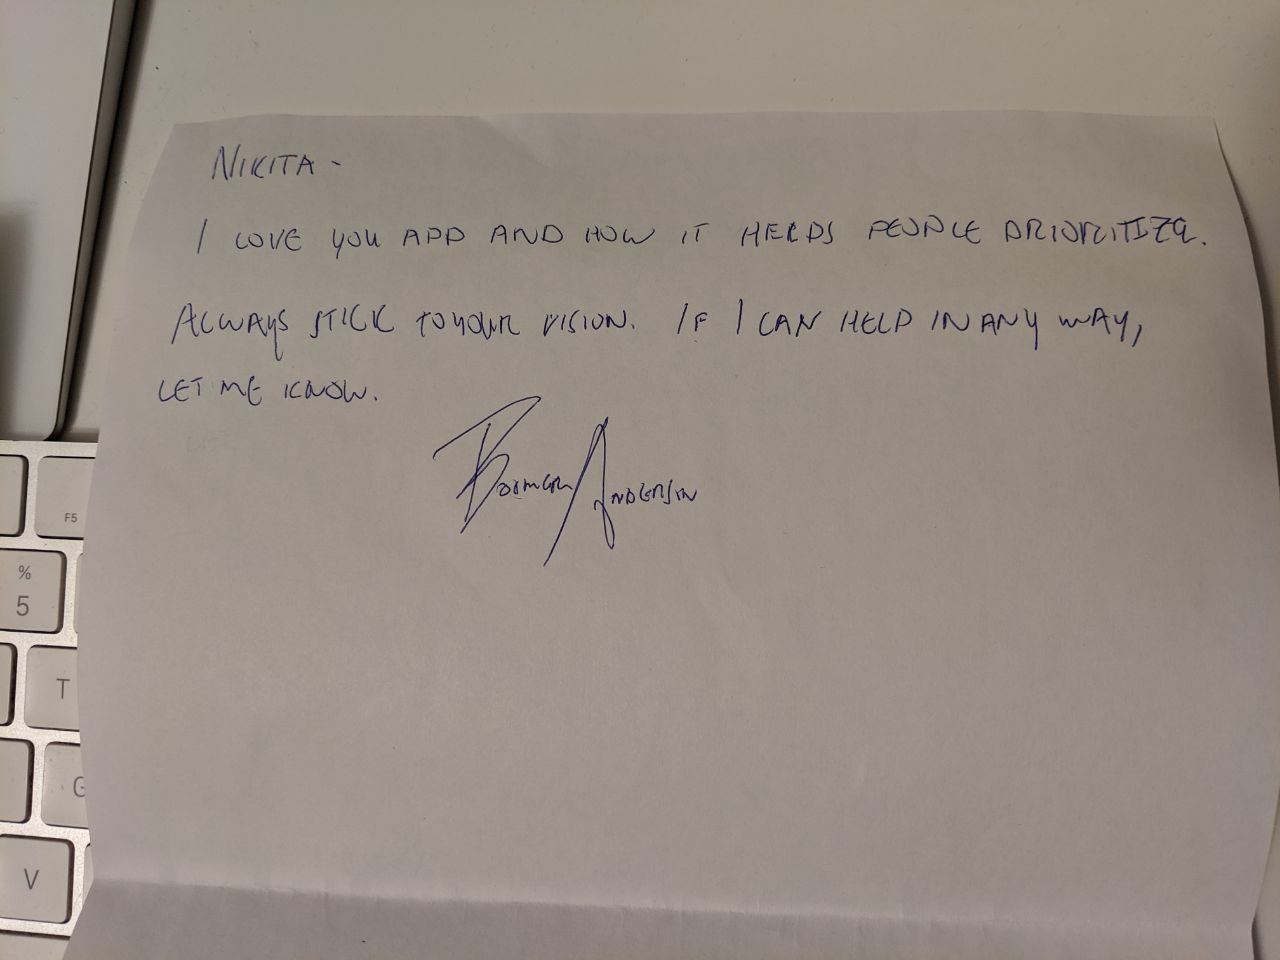 NIKITA -
I LOVE YOU APP AND HOW IT HELPS PEOPLE PRIORITIZE.
ALWAYS STICK TO YOUR VISION. IF I CAN HELP IN ANY WAY,
LET ME KNOW.
BOOMER ANDERSON
F5
%
5
T
G
V